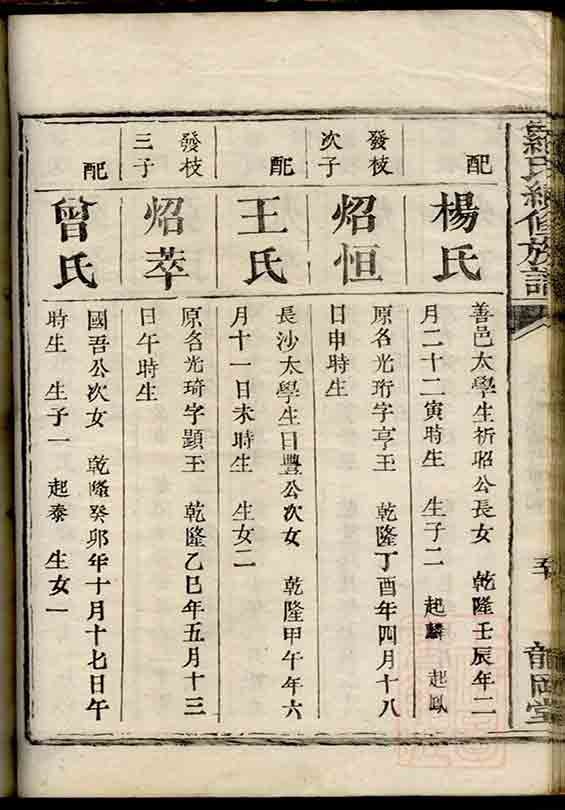 羅氏續修族譜
五
龍岡堂
配
楊氏
善邑太學生祈昭公長女　乾隆壬辰年二
月二十二寅時生　生子二　起麟　起鳳
發枝
次子
炤恒
原名光珩字亨玉　乾隆丁酉年四月十八
日申時生
配
王氏
長沙太學生日豐公次女　乾隆甲午年六
月十一日未時生　生女二
發枝
三子
炤萃
原名光琦字顕玉　乾隆乙巳年五月十三
日午時生
配
曾氏
國吾公次女　乾隆癸卯年十月十七日午
時生　生子一　起泰　生女一